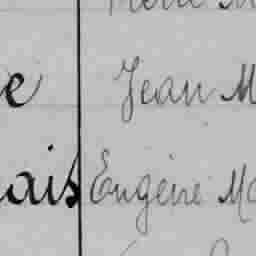 e Jean M
ais Eugène Ma